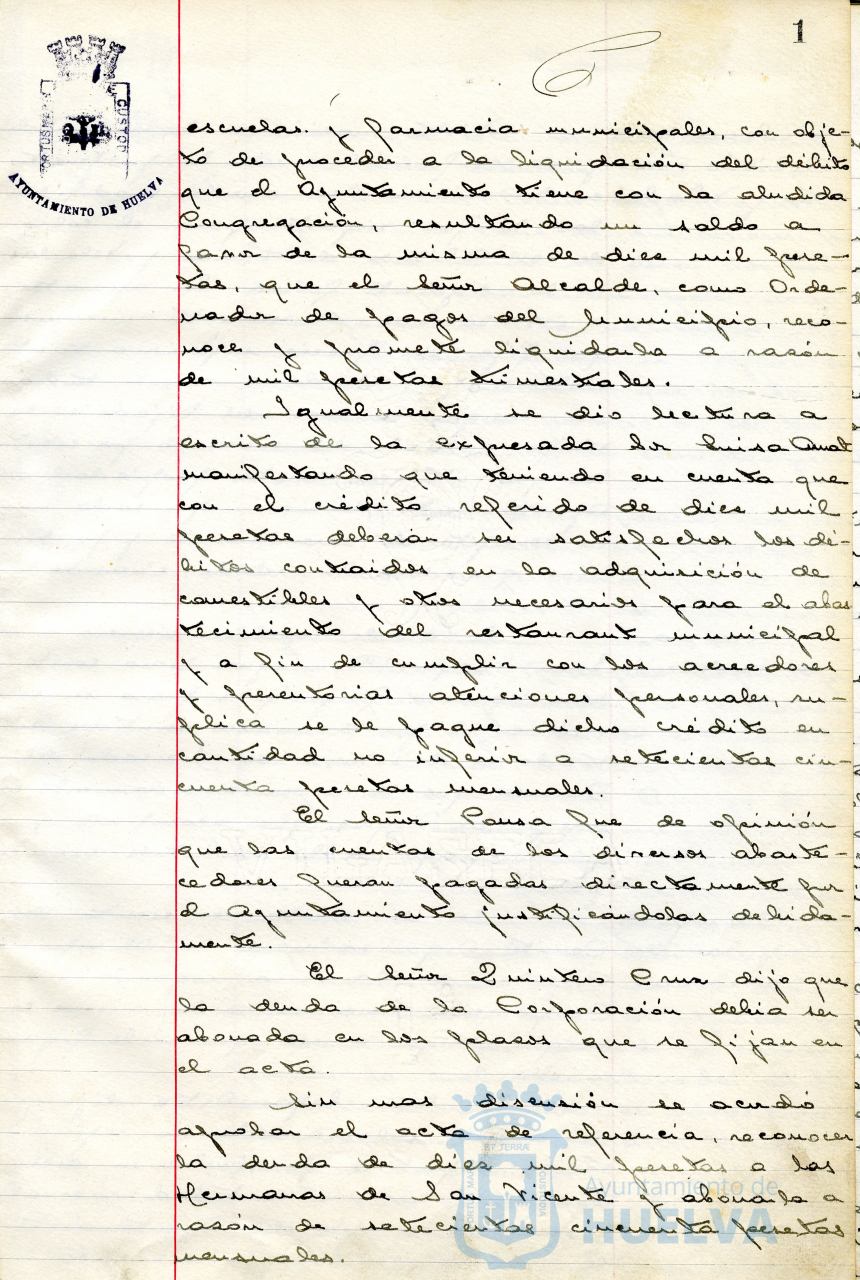 1
AYUNTAMIENTO DE HUELVA
escuelas. y farmacia municipales, con obje-
to de proceder a la liquidación del débito
que el Ayuntamiento tiene con la aludida
Congregación, resultando un saldo a
favor de la misma de diez mil pese-
tas, que el Señor Alcalde, como Orde-
nador de pagos del Municipio, reco-
noce y promete liquidarla a razón
de mil pesetas trimestrales.
Igualmente se dio lectura a
escrito de la expresada Sor Luisa Amat
manifestando que teniendo en cuenta que
con el crédito referido de diez mil
pesetas deberán ser satisfechos los dé-
bitos contraidos en la adquisición de
comestibles y otros necesarios para el abas
tecimiento del restaurant municipal
y a fin de cumplir con los acreedores
y perentorias atenciones personales, su-
plica se le pague dicho crédito en
cantidad no inferior a setecientas cin-
cuenta pesetas mensuales.
El Señor Pousa fue de opinión
que las cuentas de los diversos abaste-
cedores fueran pagadas directamente por
el Ayuntamiento justificándolas debida-
mente.
El Señor Quintero Cruz dijo que
la deuda de la Corporación debia ser
abonada en los plazos que se fijan en
el acta.
Sin mas discusión se acordó
aprobar el acta de referencia, reconocer
la deuda de diez mil pesetas a las
Hermanas de San Vicente y abonarla a
razón de setecientas cincuenta pesetas
mensuales.
Ayuntamiento de
HUELVA